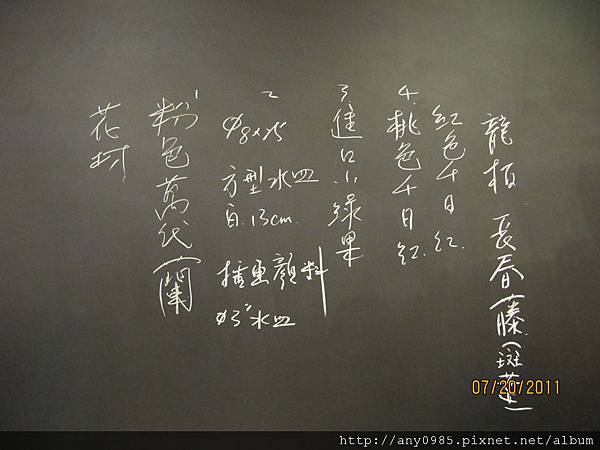 花材
1 粉色萬代蘭
2
φ8x25
方型水皿
白.13cm.
顏料
φ3"水皿
3 進口小綠果
4. 桃色千日紅.
紅色千日紅.
龍柏 長春藤(斑葉)
07/20/2011
http://any0985.pixnet.net/album